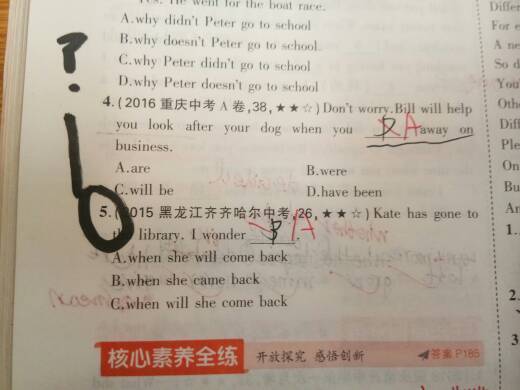 Yes. He went for the boat race.
A.why didn't Peter go to school
B.why doesn't Peter go to school.
C.why Peter didn't go to school
D.why Peter doesn't go to school
4.(2016 重庆中考 A 卷,38,★★☆) Don't worry.Bill will help
you look after your dog when you A away on
business.
A.are B.were
C.will be D.have been
5.(2015 黑龙江齐齐哈尔中考,26,★★☆) Kate has gone to
the library. I wonder B A.
A.when she will come back
B.when she came back
C.when will she come back
核心素养全练 开放探究 感悟创新 答案 P185
?